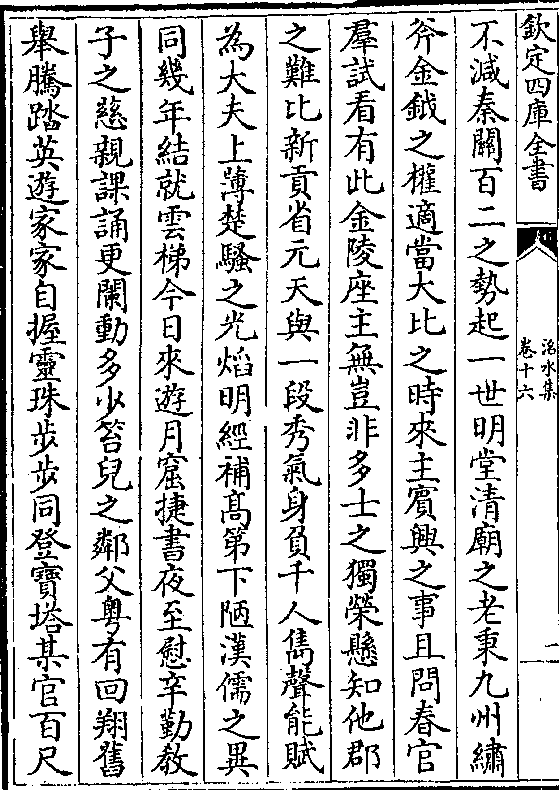 欽定四庫全書
洺水集
卷十六
二
不減秦關百二之勢起一世明堂清廟之老秉九州繡
斧金鉞之權適當大比之時來主賓興之事且問春官
羣試看有此金陵座主無豈非多士之獨榮懸知他郡
之難比新貢省元天與一段秀氣身負千人雋聲能賦
為大夫上薄楚騷之光焰明經補髙第下陋漢儒之異
同幾年結就雲梯今日來遊月窟捷書夜至慰辛勤教
子之慈親課誦更闌動多少笞兒之鄰父粤有回翔舊
舉騰踏英遊家家自握靈珠步步同登寶塔某官百尺